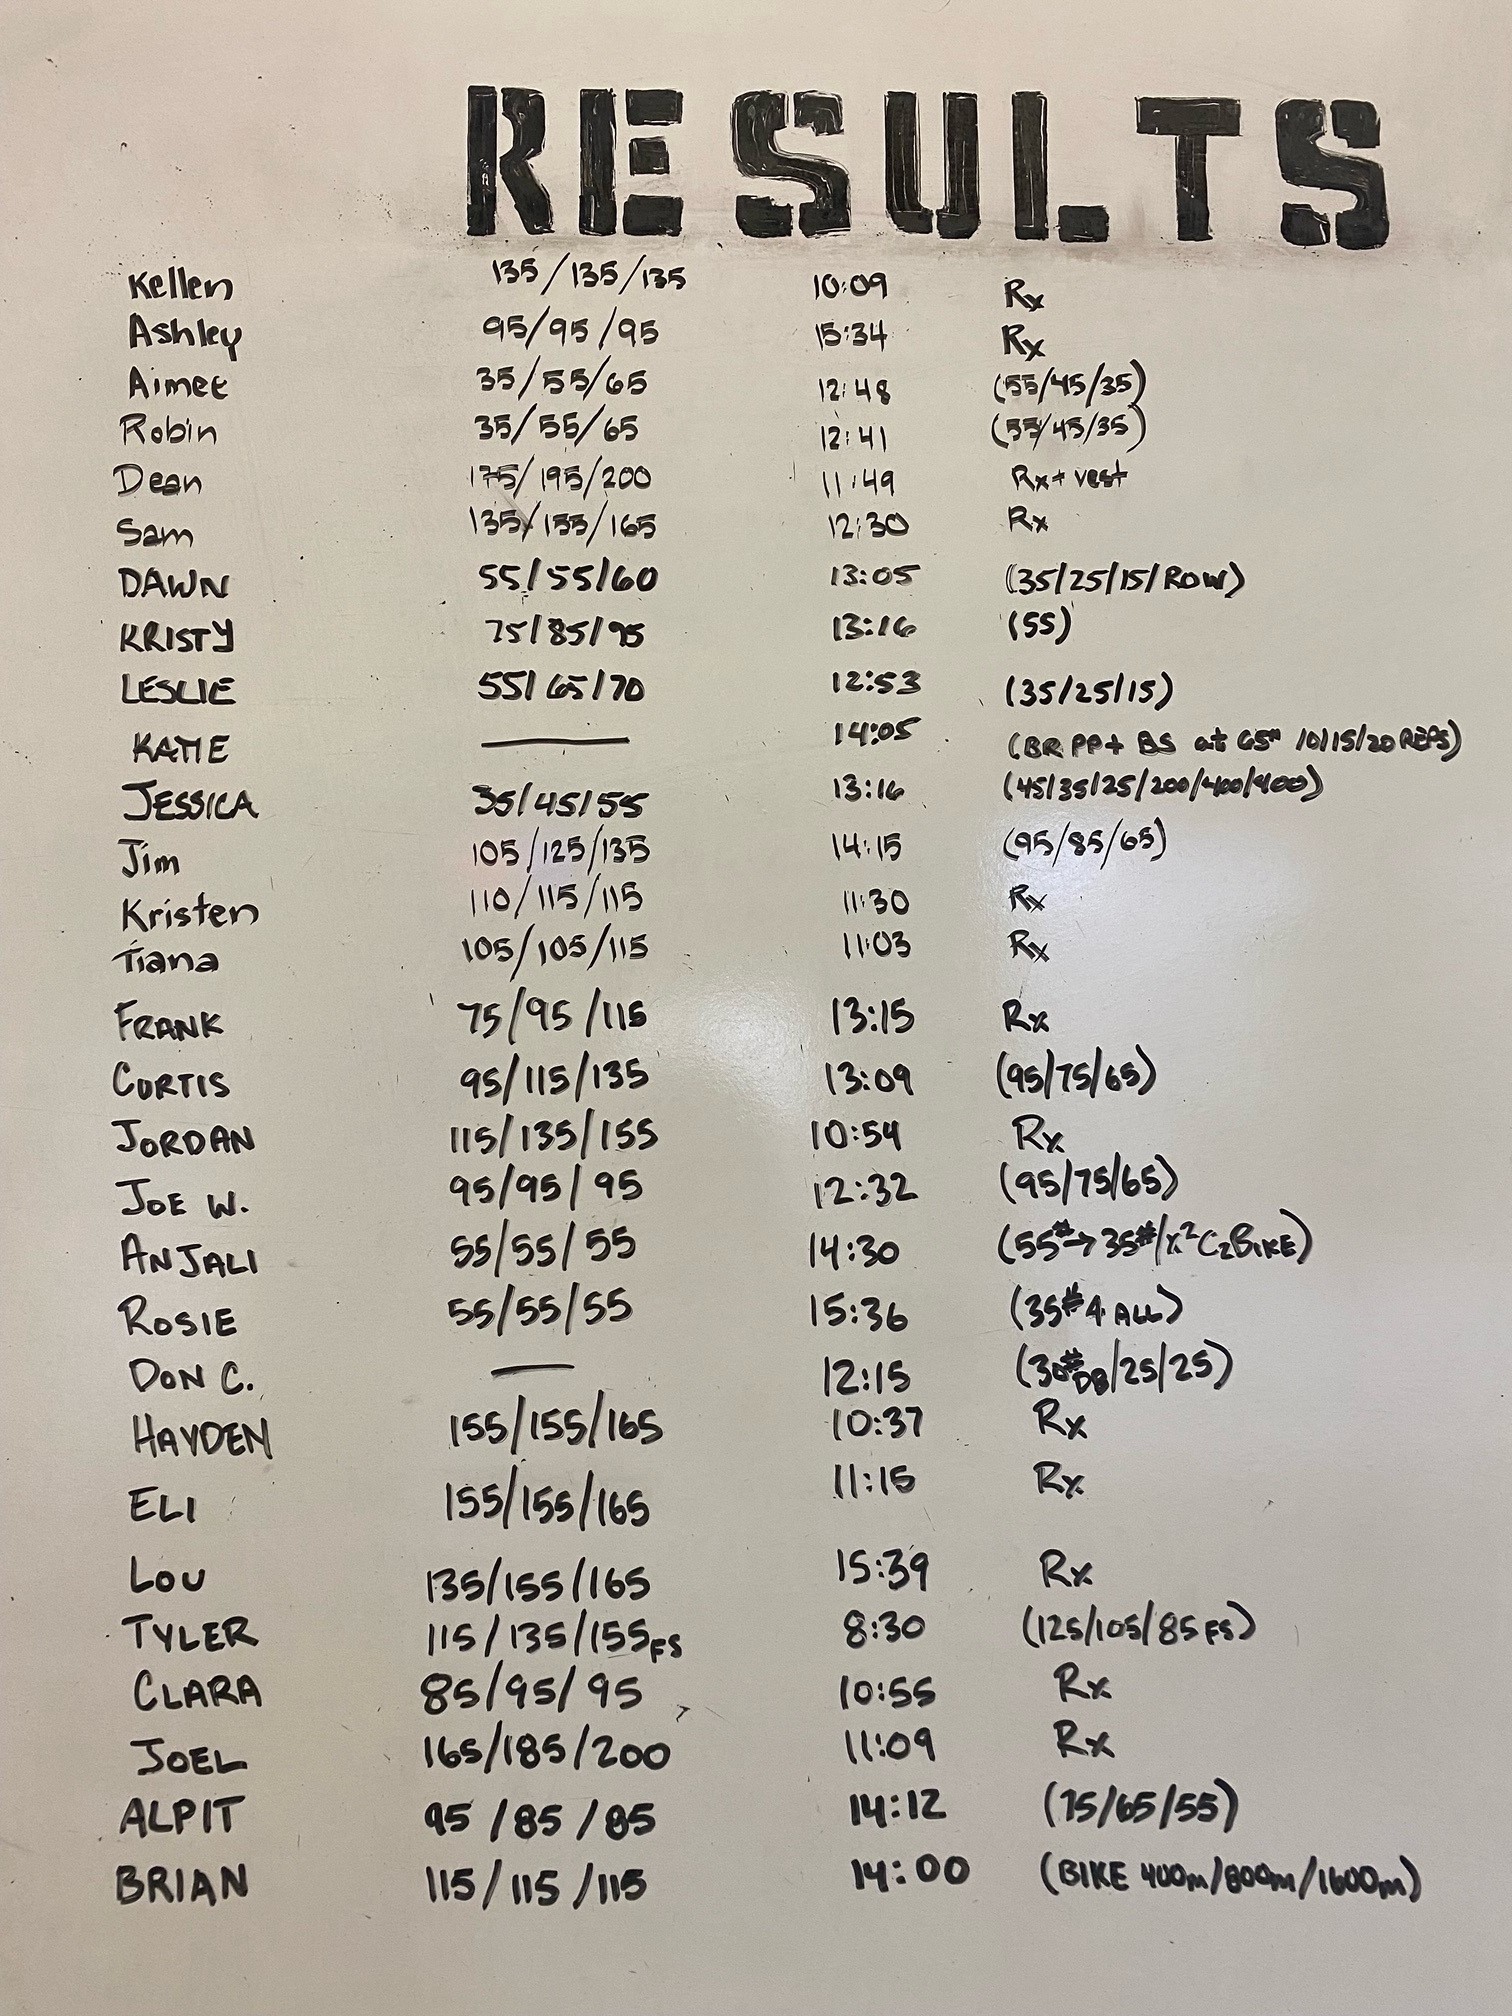 RESULTS
Kellen 135/135/135 10:09 Rx
Ashley 95/95/95 15:34 Rx
Aimee 35/55/65 12:48 (55/45/35)
Robin 35/55/65 12:41 (55/45/35)
Dean 175/195/200 11:49 Rx + vest
Sam 135/155/165 12:30 Rx
DAWN 55/55/60 13:05 (35/25/15/ROW)
KRISTY 75/85/95 13:16 (55)
LESLIE 55/65/70 12:53 (35/25/15)
KATIE — 14:05 (BR PP + BS at 65# 10/15/20 REPS)
JESSICA 35/45/55 13:16 (45/35/25/200/400/400)
Jim 105/125/135 14:15 (95/85/65)
Kristen 110/115/115 11:30 Rx
Tiana 105/105/115 11:03 Rx
FRANK 75/95/115 13:15 Rx
CURTIS 95/115/135 13:09 (95/75/65)
JORDAN 115/135/155 10:54 Rx
JOE W. 95/95/95 12:32 (95/75/65)
ANJALI 55/55/55 14:30 (55#→35#/x2 C2BIKE)
ROSIE 55/55/55 15:36 (35# 4 ALL)
DON C. — 12:15 (30# DB/25/25)
HAYDEN 155/155/165 10:37 Rx
ELI 155/155/165 11:15 Rx
LOU 135/155/165 15:39 Rx
TYLER 115/135/155 FS 8:30 (125/105/85 FS)
CLARA 85/95/95 10:55 Rx
JOEL 165/185/200 11:09 Rx
ALPIT 95/85/85 14:12 (75/65/55)
BRIAN 115/115/115 14:00 (BIKE 400m/800m/1600m)